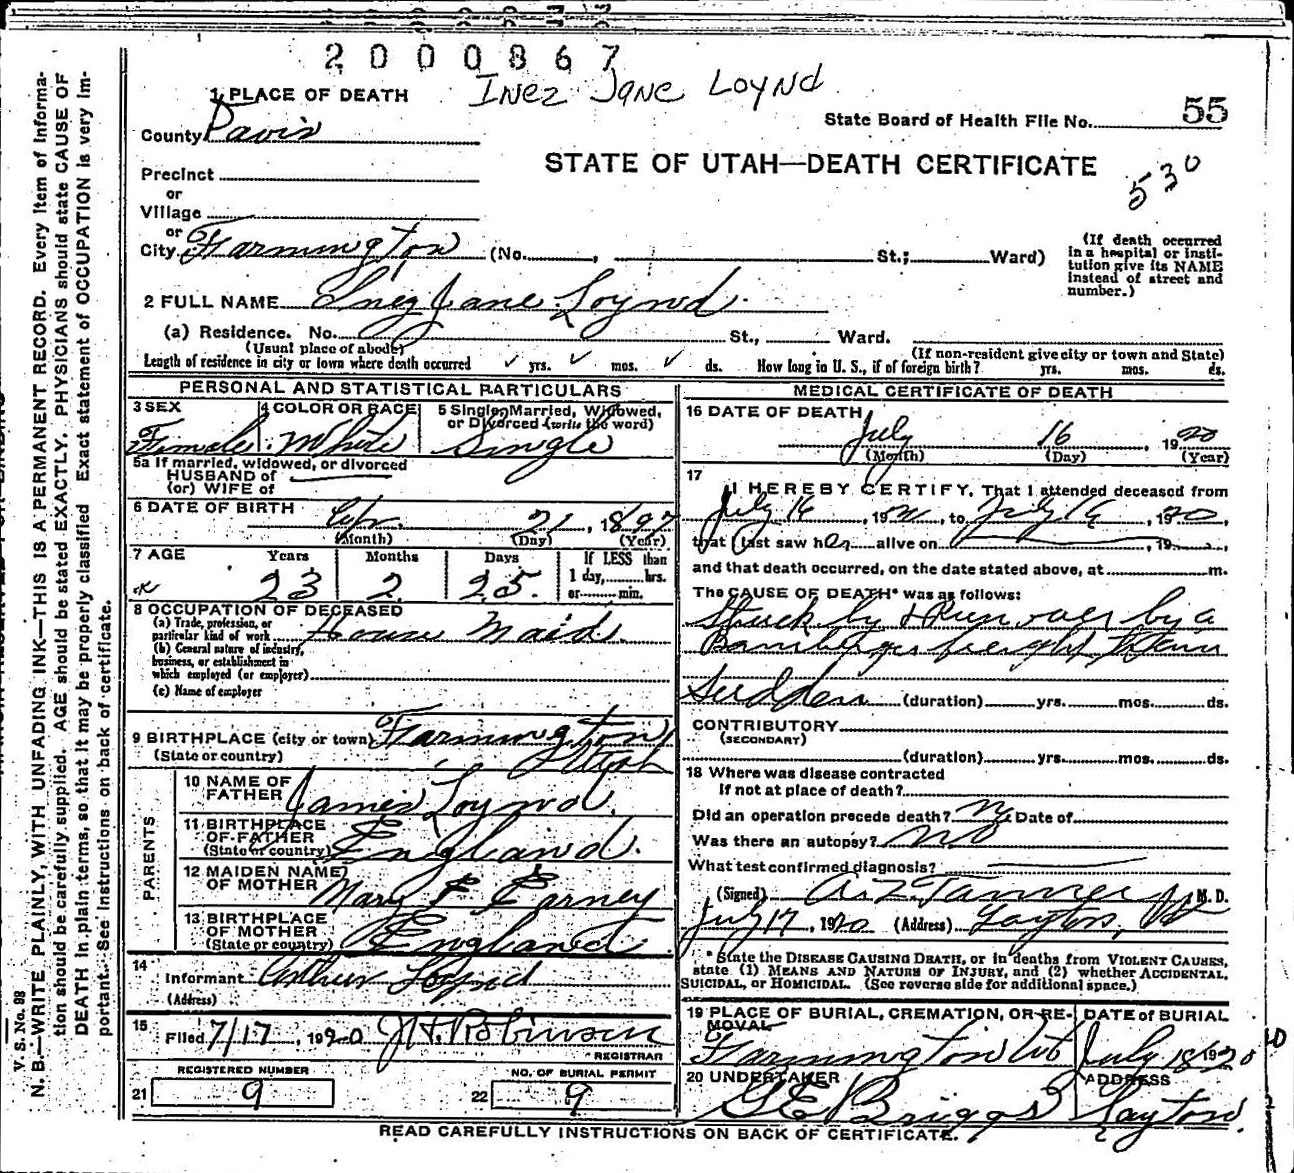 2000867
Inez Jane Loynd
1 PLACE OF DEATH
State Board of Health File No. 55
County Davis
STATE OF UTAH—DEATH CERTIFICATE
530
Precinct
or
Village
or
City Farmington (No. , St.; Ward)
(If death occurred
in a hospital or insti-
tution give its NAME
instead of street and
number.)
2 FULL NAME Inez Jane Loynd.
(a) Residence. No. St., Ward.
(Usual place of abode) (If non-resident give city or town and State)
Length of residence in city or town where death occurred ✓ yrs. ✓ mos. ✓ ds. How long in U. S., if of foreign birth? yrs. mos. ds.
PERSONAL AND STATISTICAL PARTICULARS
3 SEX 4 COLOR OR RACE 5 Single, Married, Widowed,
or Divorced (write the word)
Female White Single
5a If married, widowed, or divorced
HUSBAND of
(or) WIFE of
6 DATE OF BIRTH Apr. 21, 1897
(Month) (Day) (Year)
7 AGE Years Months Days If LESS than
1 day, hrs.
or min.
23 2 25
8 OCCUPATION OF DECEASED
(a) Trade, profession, or
particular kind of work House Maid.
(b) General nature of industry,
business, or establishment in
which employed (or employer)
(c) Name of employer
9 BIRTHPLACE (city or town) Farmington
(State or country) Utah
PARENTS
10 NAME OF
FATHER James Loynd.
11 BIRTHPLACE
OF FATHER
(State or country) England.
12 MAIDEN NAME
OF MOTHER Mary E Earney
13 BIRTHPLACE
OF MOTHER
(State or country) England
14
Informant Arthur Loynd
(Address)
15
Filed 7/17, 1920 J H Robinson
REGISTRAR
REGISTERED NUMBER
21 9
NO. OF BURIAL PERMIT
22 9
MEDICAL CERTIFICATE OF DEATH
16 DATE OF DEATH
July 16 1920
(Month) (Day) (Year)
17
I HEREBY CERTIFY, That I attended deceased from
July 16, 1920, to July 16, 1920,
that I last saw her alive on , 19 ,
and that death occurred, on the date stated above, at m.
The CAUSE OF DEATH* was as follows:
Struck by & Run over by a
Bamberger freight Train
Sudden (duration) yrs. mos. ds.
CONTRIBUTORY
(SECONDARY)
(duration) yrs. mos. ds.
18 Where was disease contracted
If not at place of death?
Did an operation precede death? No Date of
Was there an autopsy? No
What test confirmed diagnosis?
(Signed) A. Z. Tanner M. D.
July 17, 1920 (Address) Layton, Ut
* State the DISEASE CAUSING DEATH, or in deaths from VIOLENT CAUSES,
state (1) MEANS AND NATURE OF INJURY, and (2) whether ACCIDENTAL,
SUICIDAL, or HOMICIDAL. (See reverse side for additional space.)
19 PLACE OF BURIAL, CREMATION, OR RE-
MOVAL
DATE of BURIAL
Farmington Ut July 18 1920
20 UNDERTAKER ADDRESS
G E Briggs Layton.
READ CAREFULLY INSTRUCTIONS ON BACK OF CERTIFICATE.
V. S. No. 88
N. B.—WRITE PLAINLY, WITH UNFADING INK—THIS IS A PERMANENT RECORD. Every item of informa-
tion should be carefully supplied. AGE should be stated EXACTLY. PHYSICIANS should state CAUSE OF
DEATH in plain terms, so that it may be properly classified. Exact statement of OCCUPATION is very im-
portant. See Instructions on back of certificate.